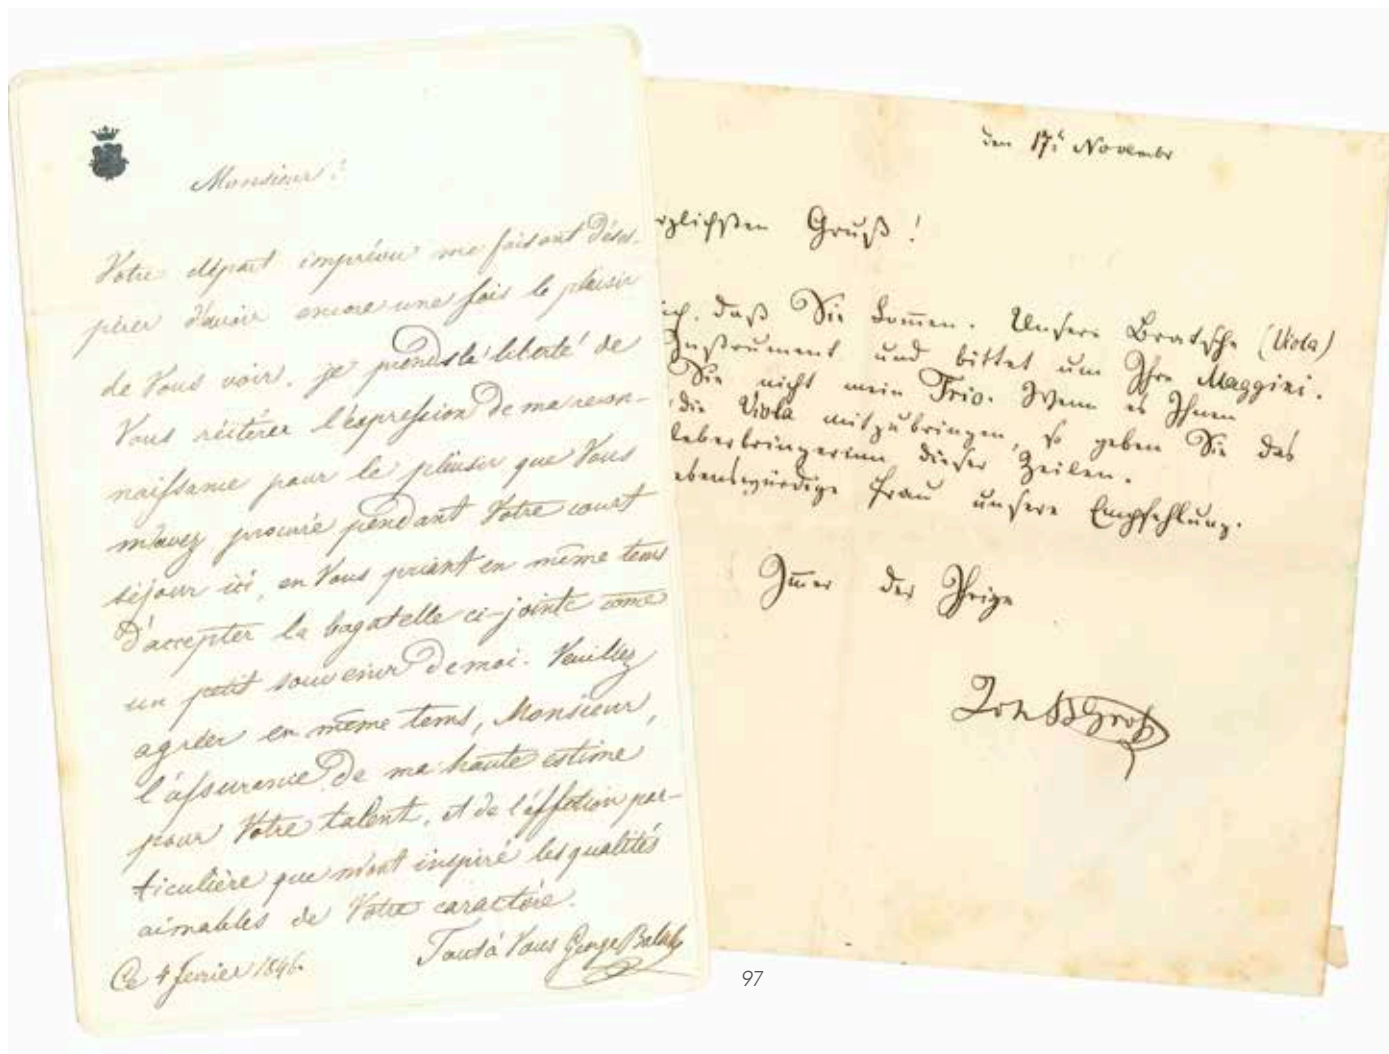 Monsieur!
Votre départ imprévu me faisant déses-
pérer d'avoir encore une fois le plaisir
de Vous voir, je prends la liberté de
Vous réitérer l'expression de ma recon-
naissance pour le plaisir que Vous
m'avez procuré pendant Votre court
séjour ici, en Vous priant en même tems
d'accepter la bagatelle ci-jointe come
un petit souvenir de moi. Veuillez
agréer en même tems, Monsieur,
l'assurance de ma haute estime
pour Votre talent, et de l'affection par-
ticulière que m'ont inspiré les qualités
aimables de Votre caractère.
Tout à Vous George
Ce 4 fevrier 1846.
den 17. November
rzlichsten Gruß!
ich, daß Sie kom̅en. Unsere Bratsche (Viola)
Instrument und bittet um Ihre Maggini.
Sie nicht mein Trio. Wenn es Ihnen
die Viola mitzubringen, so geben Sie das
Ueberbringerinn dieser Zeilen.
ebenswürdige Frau unsere Empfehlung.
Im̅er der Ihrige
Joh B Groß
97